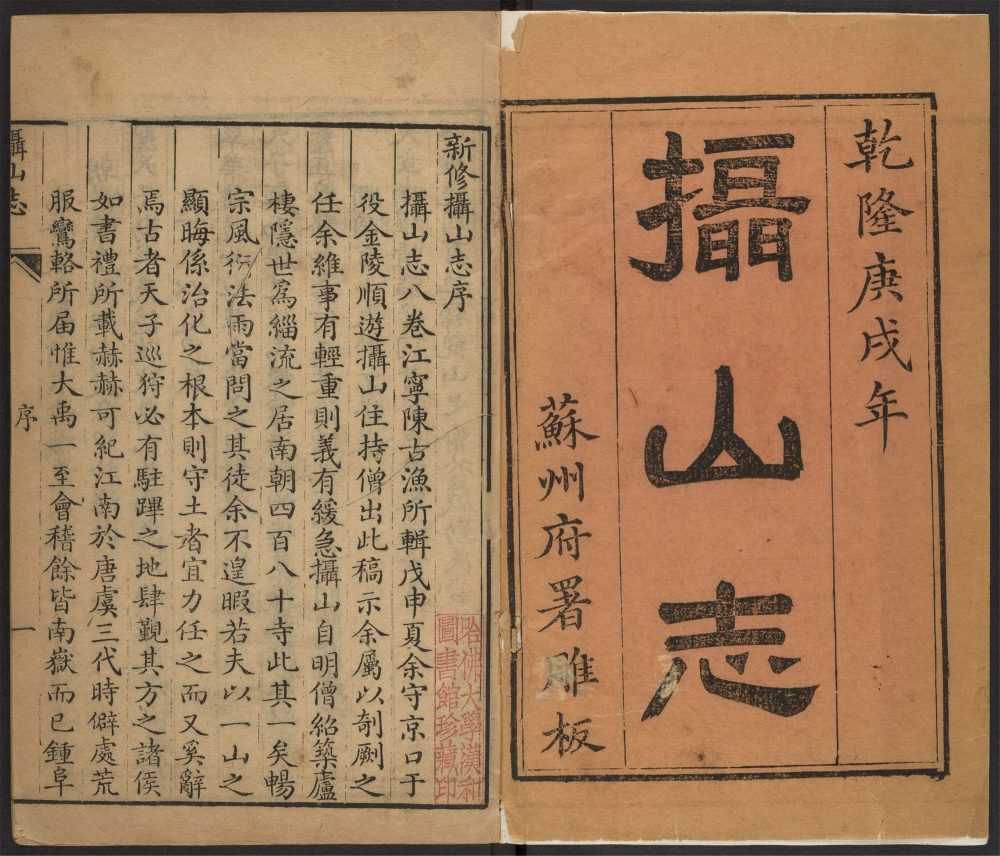 乾隆庚戌年
攝山志
蘇州府署雕板
新修攝山志序
攝山志八卷江寧陳古漁所輯戊申夏余守京口于
役金陵順遊攝山住持僧出此稿示余屬以剞劂之
任余維事有輕重則義有緩急攝山自明僧紹築廬
棲隱世爲緇流之居南朝四百八十寺此其一矣暢
宗風衍法雨當問之其徒余不遑暇若夫以一山之
顯晦係治化之根本則守土者宜力任之而又奚辭
焉古者天子巡狩必有駐蹕之地肆覲其方之諸侯
如書禮所載赫赫可紀江南於唐虞三代時僻處荒
服鸞輅所届惟大禹一至會稽餘皆南嶽而已鍾阜
攝山志
序
一
哈佛大學漢和
圖書館珍藏印